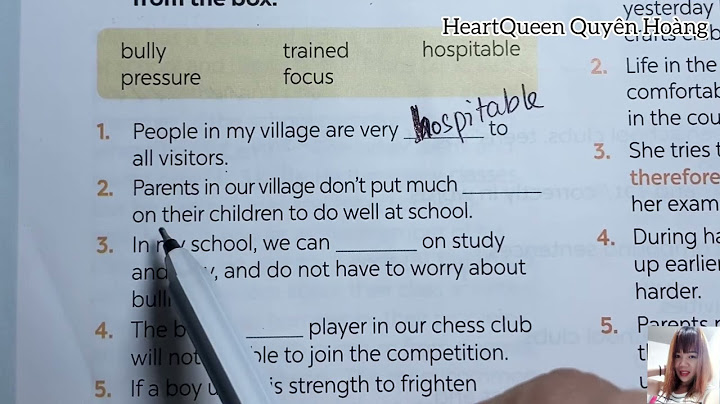 from the box.
HeartQueen Quyên Hoàng
bully trained hospitable
pressure focus
1. People in my village are very hospitable to
all visitors.
2. Parents in our village don't put much ________
on their children to do well at school.
3. In my school, we can ________ on study
and , and do not have to worry about
4. The ________ player in our chess club
will not to join the competition.
5. If a boy strength to frighten
yesterday
crafts club
2. Life in the
in the
3. She tries t
therefore
her exam
4. During
up earlie
harder.
5. Parents